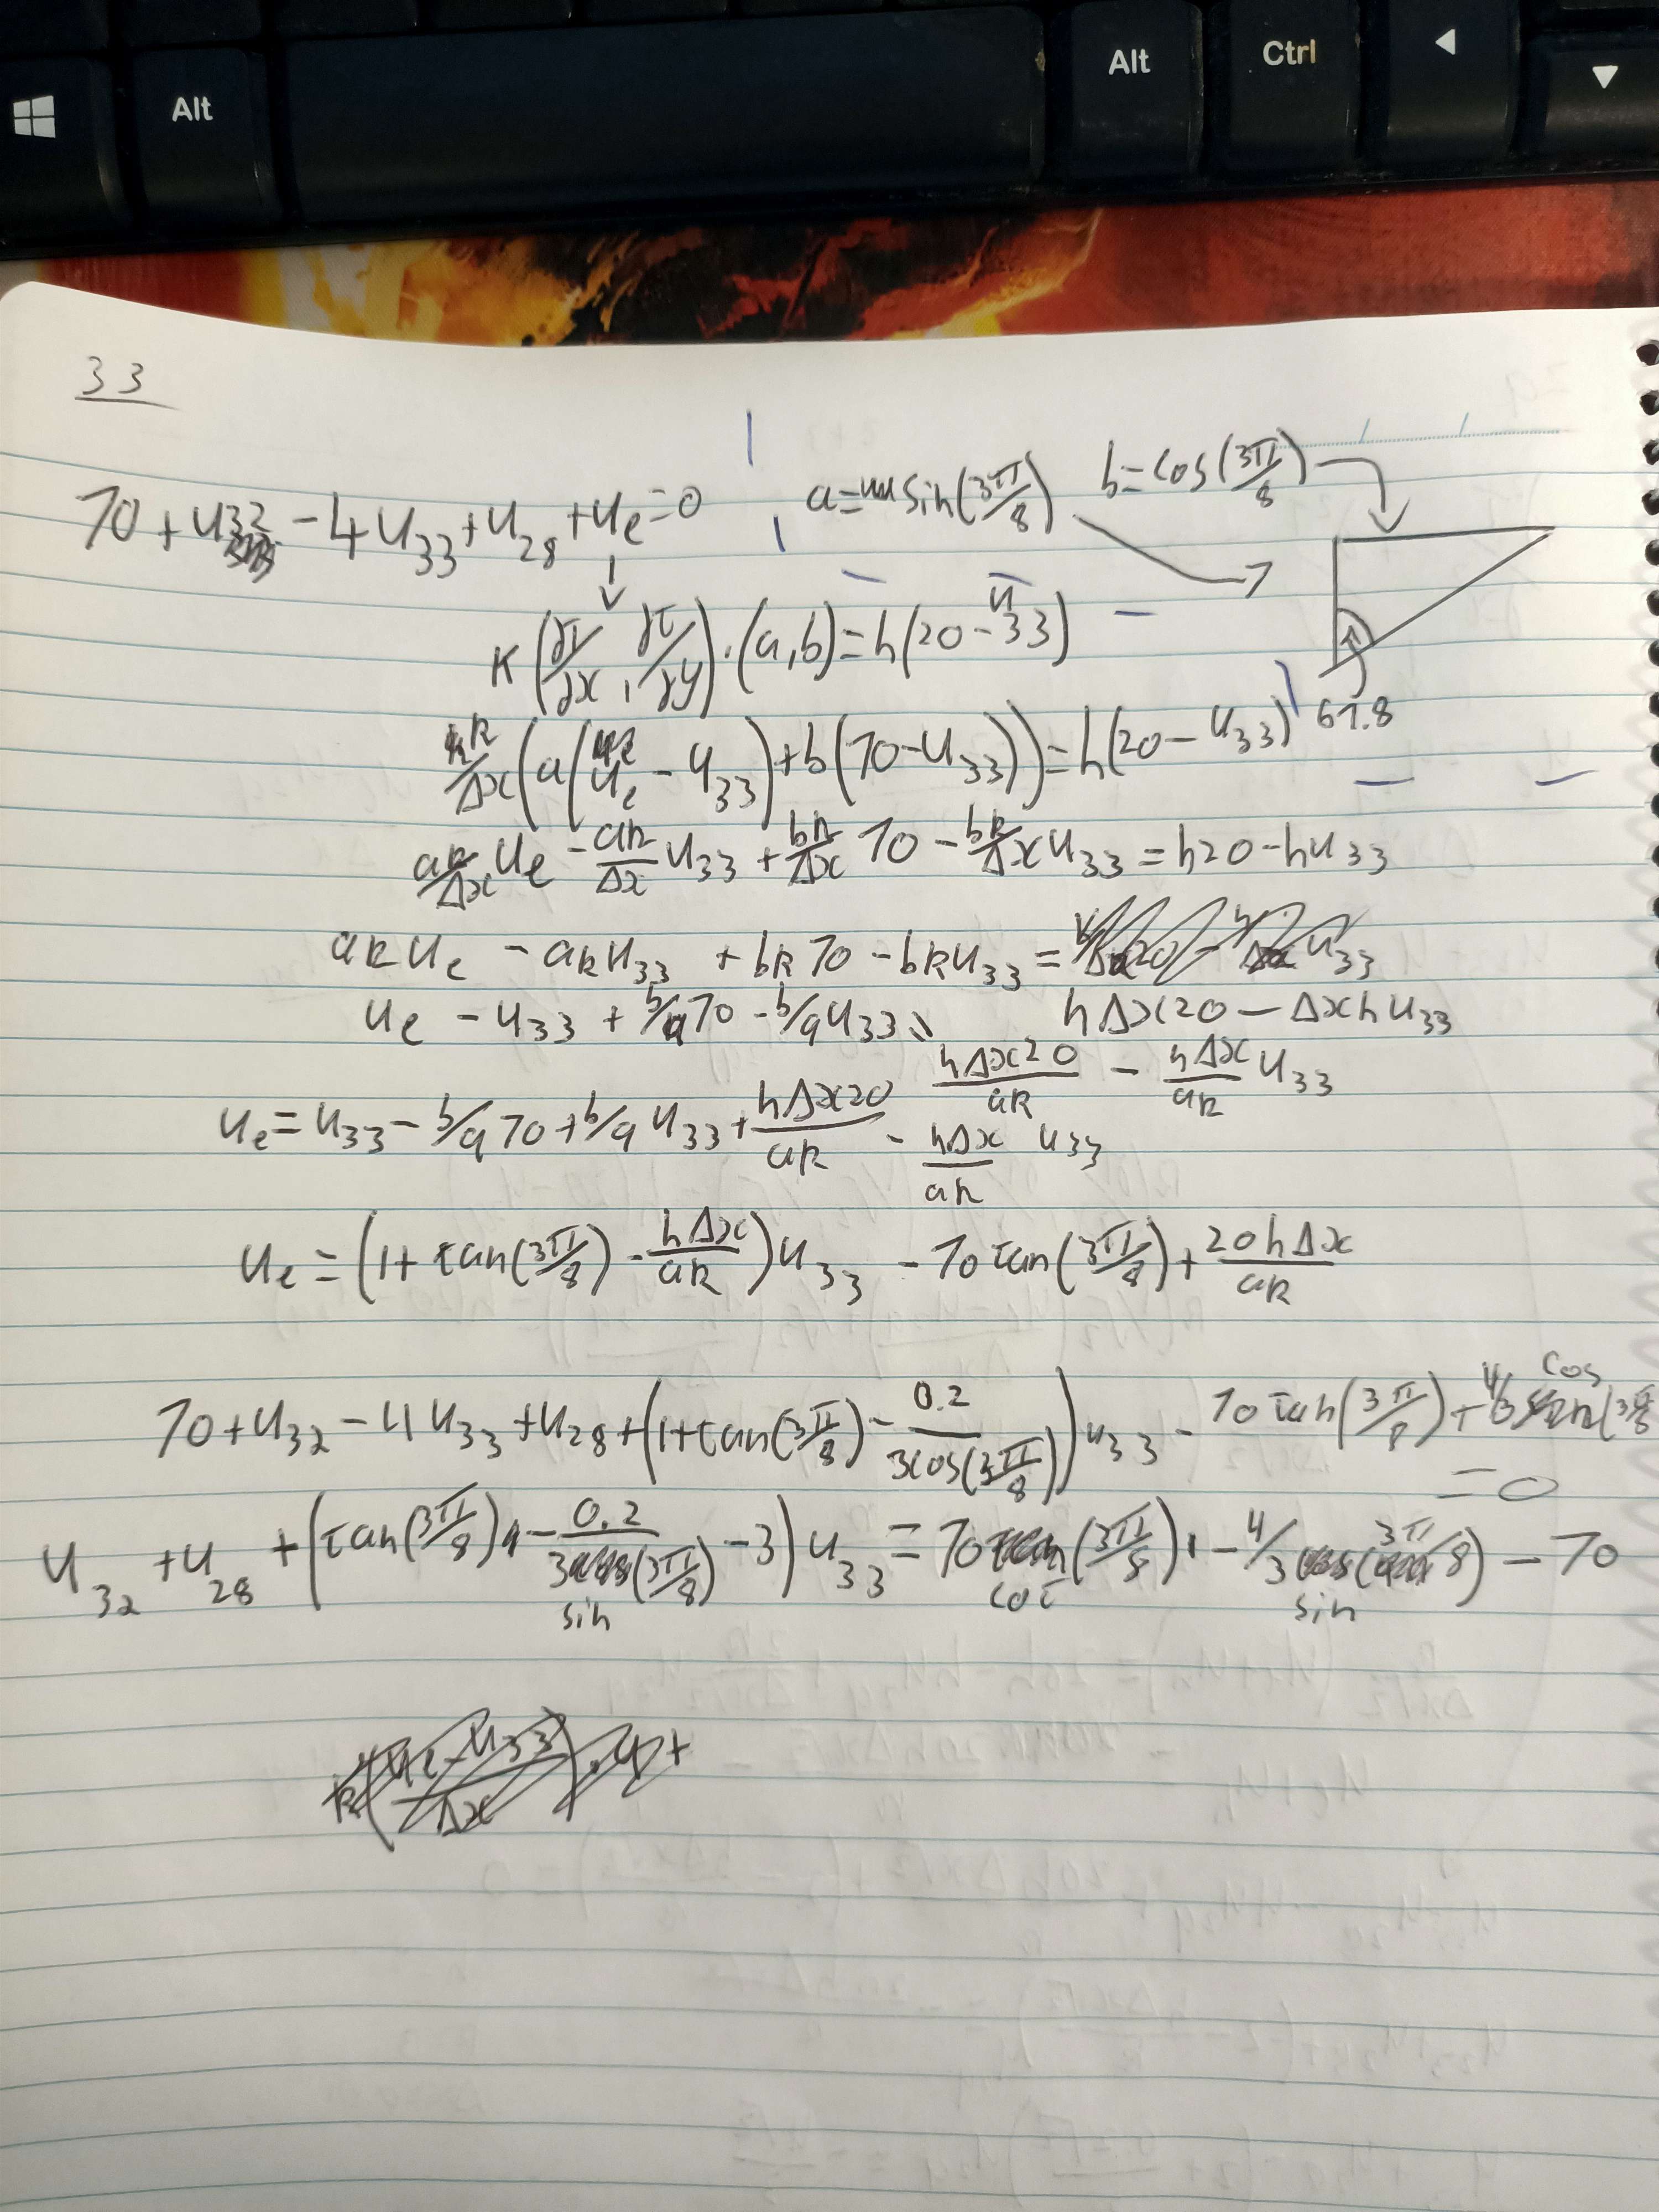 Alt
Alt
Ctrl
33
70 + u32 - 4u33 + u28 + ue = 0
a = sin(3π/8)
b = cos(3π/8)
K(∂T/∂x, ∂T/∂y)·(a,b) = h(20 - u33)
67.8
k/Δx(a(ue - u33) + b(70 - u33)) = h(20 - u33)
ak/Δx ue - ak/Δx u33 + bk/Δx 70 - bk/Δx u33 = h20 - hu33
akue - aku33 + bk70 - bku33 =
ue - u33 + b/a70 - b/au33 hΔx20 - Δxhu33
hΔx20/ak - hΔx/ak u33
ue = u33 - b/a70 + b/au33 + hΔx20/ak - hΔx/ak u33
ue = (1 + tan(3π/8) - hΔx/ak)u33 - 70tan(3π/8) + 20hΔx/ak
70 + u32 - 4u33 + u28 + (1 + tan(3π/8) - 0.2/3cos(3π/8))u33 - 70tan(3π/8) + 4/3 cos(3π/8
= 0
u32 + u28 + (tan(3π/8) - 0.2/3sin(3π/8) - 3)u33 = 70cot(3π/8) - 4/3 sin(3π/8) - 70